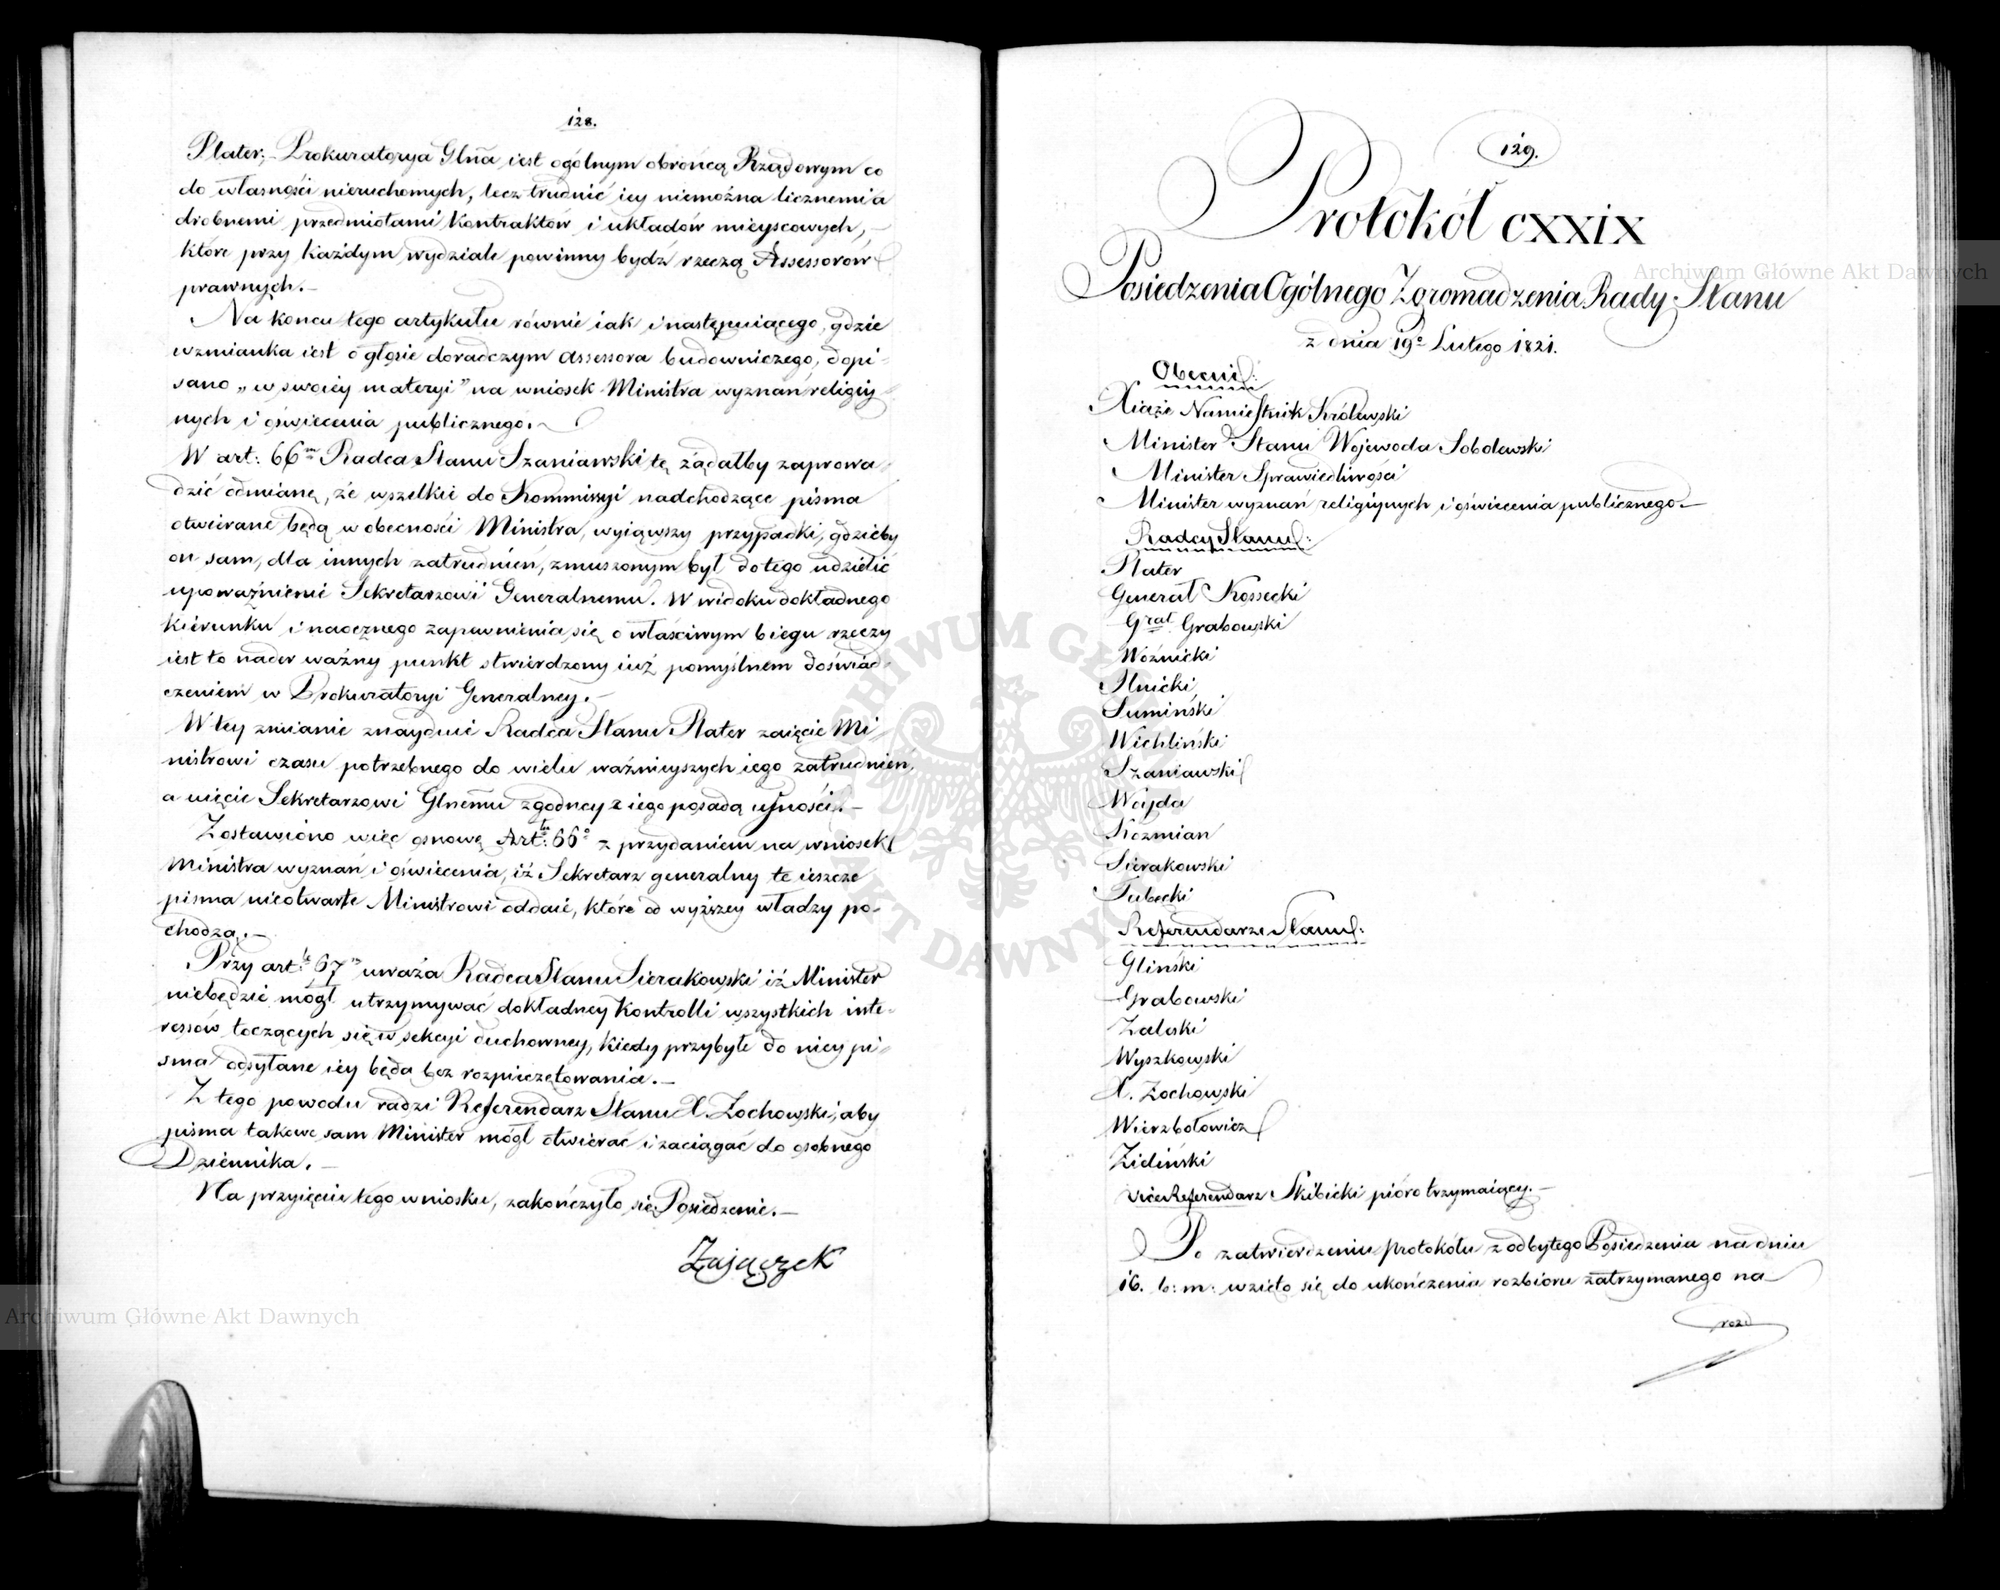 128.
Plater; Prokuratorya Glna iest ogólnym obrońcą Rządowym co
do własności nieruchomych, lecz trudnić iey niemożna licznemi a
drobnemi przedmiotami kontraktów i układów mieyscowych,
które przy każdym wydziale powinny bydź rzeczą Assessorów
prawnych.—
Na końcu tego artykułu równie iak i następuiącego, gdzie
wzmianka iest o głosie doradczym assessora budowniczego, dopi-
sano „w swoiey materyi" na wniosek Ministra wyznań religiy
nych i oświecenia publicznego.
W art: 66m Radca Stanu Szaniawski tę żądałby zaprowa-
dzić odmianę, że wszelkie do Kommissyi nadchodzące pisma
otwierane będą w obecności Ministra, wyiąwszy przypadki, gdzieby
on sam, dla innych zatrudnień, zmuszonym był do tego udzielić
upoważnienie Sekretarzowi Generalnemu. W widoku dokładnego
kierunku i naocznego zapewnienia się o właściwym biegu rzeczy
iest to nader ważny punkt stwierdzony iuż pomyślnem doświad-
czeniem w Prokuratoryi Generalney.—
W tey zmianie znayduie Radca Stanu Plater zaięcie Mi-
nistrowi czasu potrzebnego do wielu ważnieyszych iego zatrudnień,
a uięcie Sekretarzowi Glnemu zgodney z iego posadą ufności.—
Zostawiono więc osnowę Art:łu 66o z przydaniem na wniosek
Ministra wyznań i oświecenia, iż Sekretarz generalny te ieszcze
pisma nieotwarte Ministrowi oddaie, które od wyższey władzy po-
chodzą.—
Przy art:le 67m uważa Radca Stanu Sierakowski iż Minister
niebędzie mógł utrzymywać dokładney kontrolli wszystkich inte-
ressów toczących się w sekcyi duchowney, kiedy przybyłe do niey pi-
sma odsyłane iey będą bez rozpieczętowania.—
Z tego powodu radzi Referendarz Stanu X. Zochowski, aby
pisma takowe sam Minister mógł otwierać i zaciągać do osobnego
Dziennika.—
Na przyięciu tego wniosku, zakończyło się Posiedzenie.—
Zajączek
129.
Protokół CXXIX
Posiedzenia Ogólnego Zgromadzenia Rady Stanu
z dnia 19o Lutego 1821.
Obecni:
Xiąże Namiestnik Królewski
Minister Stanu Wojewoda Sobolewski
Minister Sprawiedliwości
Minister wyznań religiynych i oświecenia publicznego.—
Radcy Stanu:
Plater
Generał Kossecki
Grał Grabowski
Woźnicki
Ilnicki
Sumiński
Wichliński
Szaniawski
Woyda
Koźmian
Sierakowski
Tabecki
Referendarze Stanu:
Gliński
Grabowski
Zaleski
Wyszkowski
X. Zochowski
Wierzbołowicz
Zieliński
ViceReferendarz Skibicki pióro trzymaiący.—
Po zatwierdzeniu protokołu z odbytego Posiedzenia na dniu
16. b: m: wzięto się do ukończenia rozbioru zatrzymanego na
rozd
Archiwum Główne Akt Dawnych
Archiwum Główne Akt Dawnych
ARCHIWUM GŁÓWNE
AKT DAWNYCH